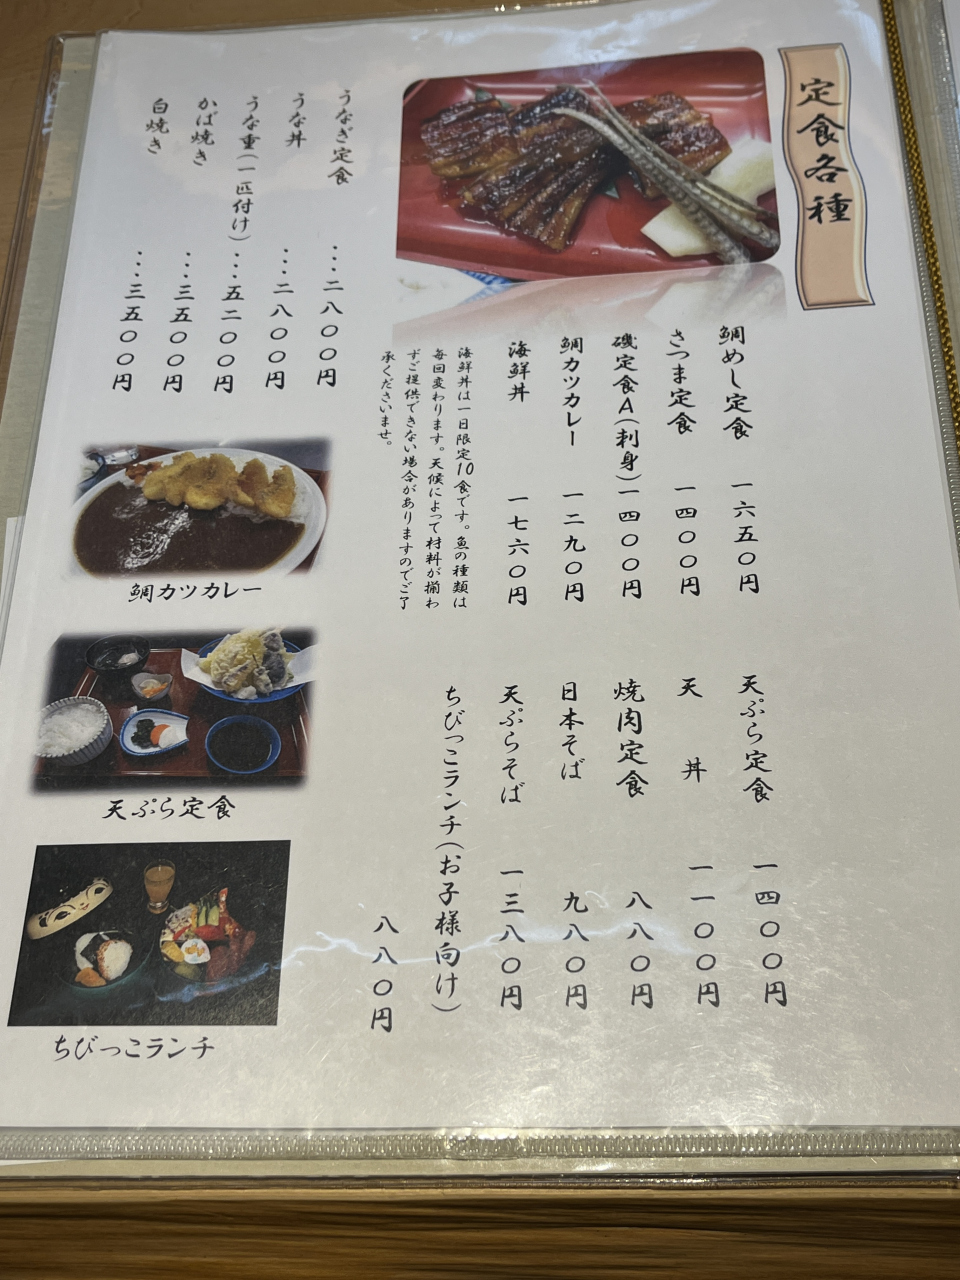 定食各種
鯛めし定食 一六五〇円
さつま定食 一四〇〇円
磯定食A(刺身)一四〇〇円
鯛カツカレー 一二九〇円
海鮮丼 一七六〇円
海鮮丼は一日限定10食です。魚の種類は
毎回変わります。天候によって材料が揃わ
ずご提供できない場合がありますのでご了
承くださいませ。
うなぎ定食 ・・・二八〇〇円
うな丼 ・・・二八〇〇円
うな重(一匹付け)・・・五二〇〇円
かば焼き ・・・三五〇〇円
白焼き ・・・三五〇〇円
天ぷら定食 一四〇〇円
天丼 一一〇〇円
焼肉定食 八八〇円
日本そば 九八〇円
天ぷらそば 一三八〇円
ちびっこランチ(お子様向け)
八八〇円
鯛カツカレー
天ぷら定食
ちびっこランチ